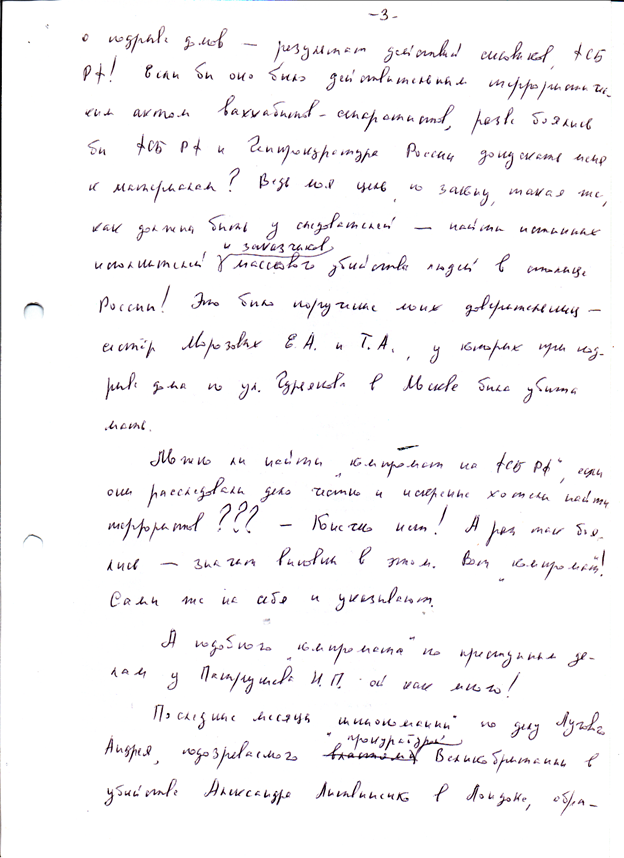 -3-
о подрыве домов — результат действий силовиков, ФСБ
РФ! Если бы оно было действительным террористичес-
ким актом ваххабитов-сепаратистов, разве боялись
бы ФСБ РФ и Генпрокуратура России допускать меня
к материалам? Ведь моя цель, по закону, такая же,
как должна быть у следователей — найти истинных
и заказчиков
исполнителей массового убийства людей в столице
России! Это было поручение моих доверительниц —
сестёр Морозовых Е.А. и Т.А., у которых при под-
рыве дома по ул. Гурьянова в Москве была убита
мать.
Можно ли найти „компромат на ФСБ РФ“, если
они расследовали дело честно и искренне хотели найти
террористов??? — Конечно нет! А раз так боя-
лись — значит виновны в этом. Вот „компромат“!
Сами же на себя и указывают.
А подобного „компромата“ по преступным де-
лам у Патрушева Н.П. ой как много!
Последние месяцы „шпиономании“ по делу Лугового
прокуратурой
Андрея, подозреваемого властями Великобритании в
убийстве Александра Литвиненко в Лондоне, обра-